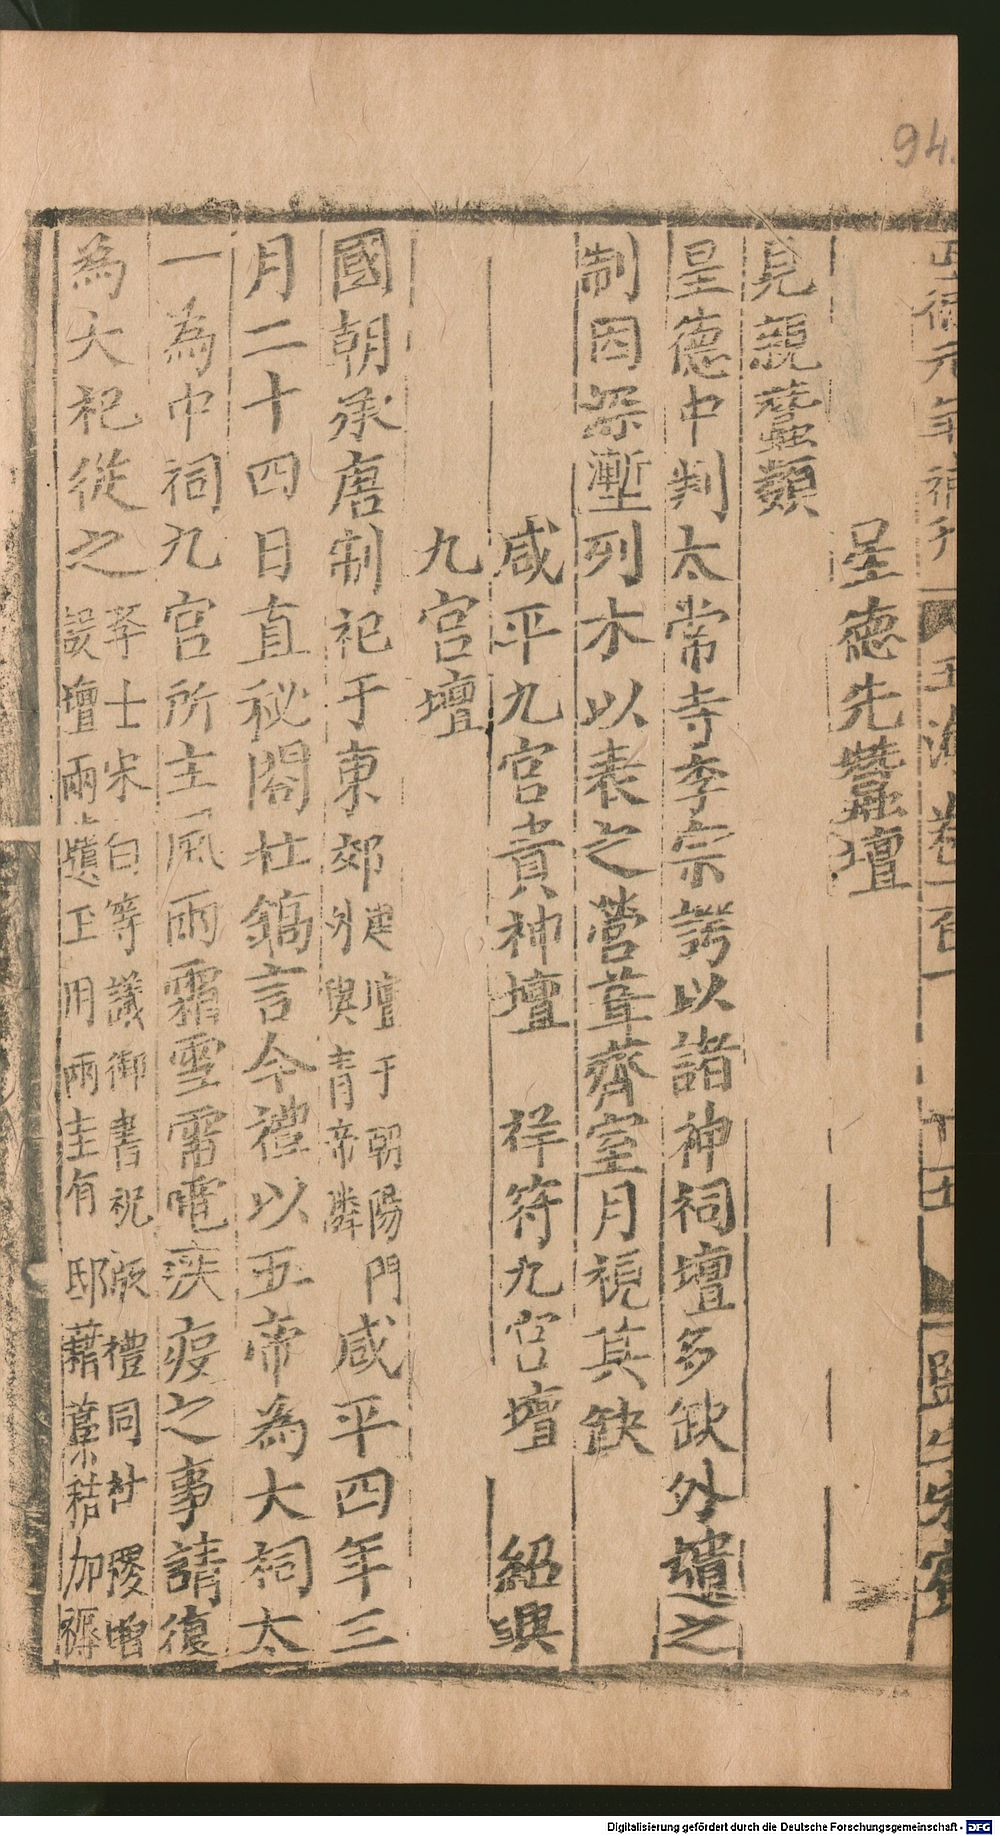 94.
正德元年補刊 玉海卷一百 十五 監生朱賓
景德先蠶壇
見親蠶類
景德中判太常寺李宗諤以諸神祠壇多缺外壝之
制因深塹列木以表之營葺齊室月視其缺
咸平九宮貴神壇 祥符九宮壇 紹興
九宮壇
國朝承唐制祀于東郊建壇于朝陽門外與青帝隣咸平四年三
月二十四日直秘閣杜鎬言今禮以五帝為大祠太
一為中祠九宮所主風雨霜雪雷電疾疫之事請復
為大祀從之李士宋白等議御書祝版禮同社稷增
設壇兩壝玉用兩圭有邸藉藁秸加褥
Digitalisierung gefördert durch die Deutsche Forschungsgemeinschaft - DFG